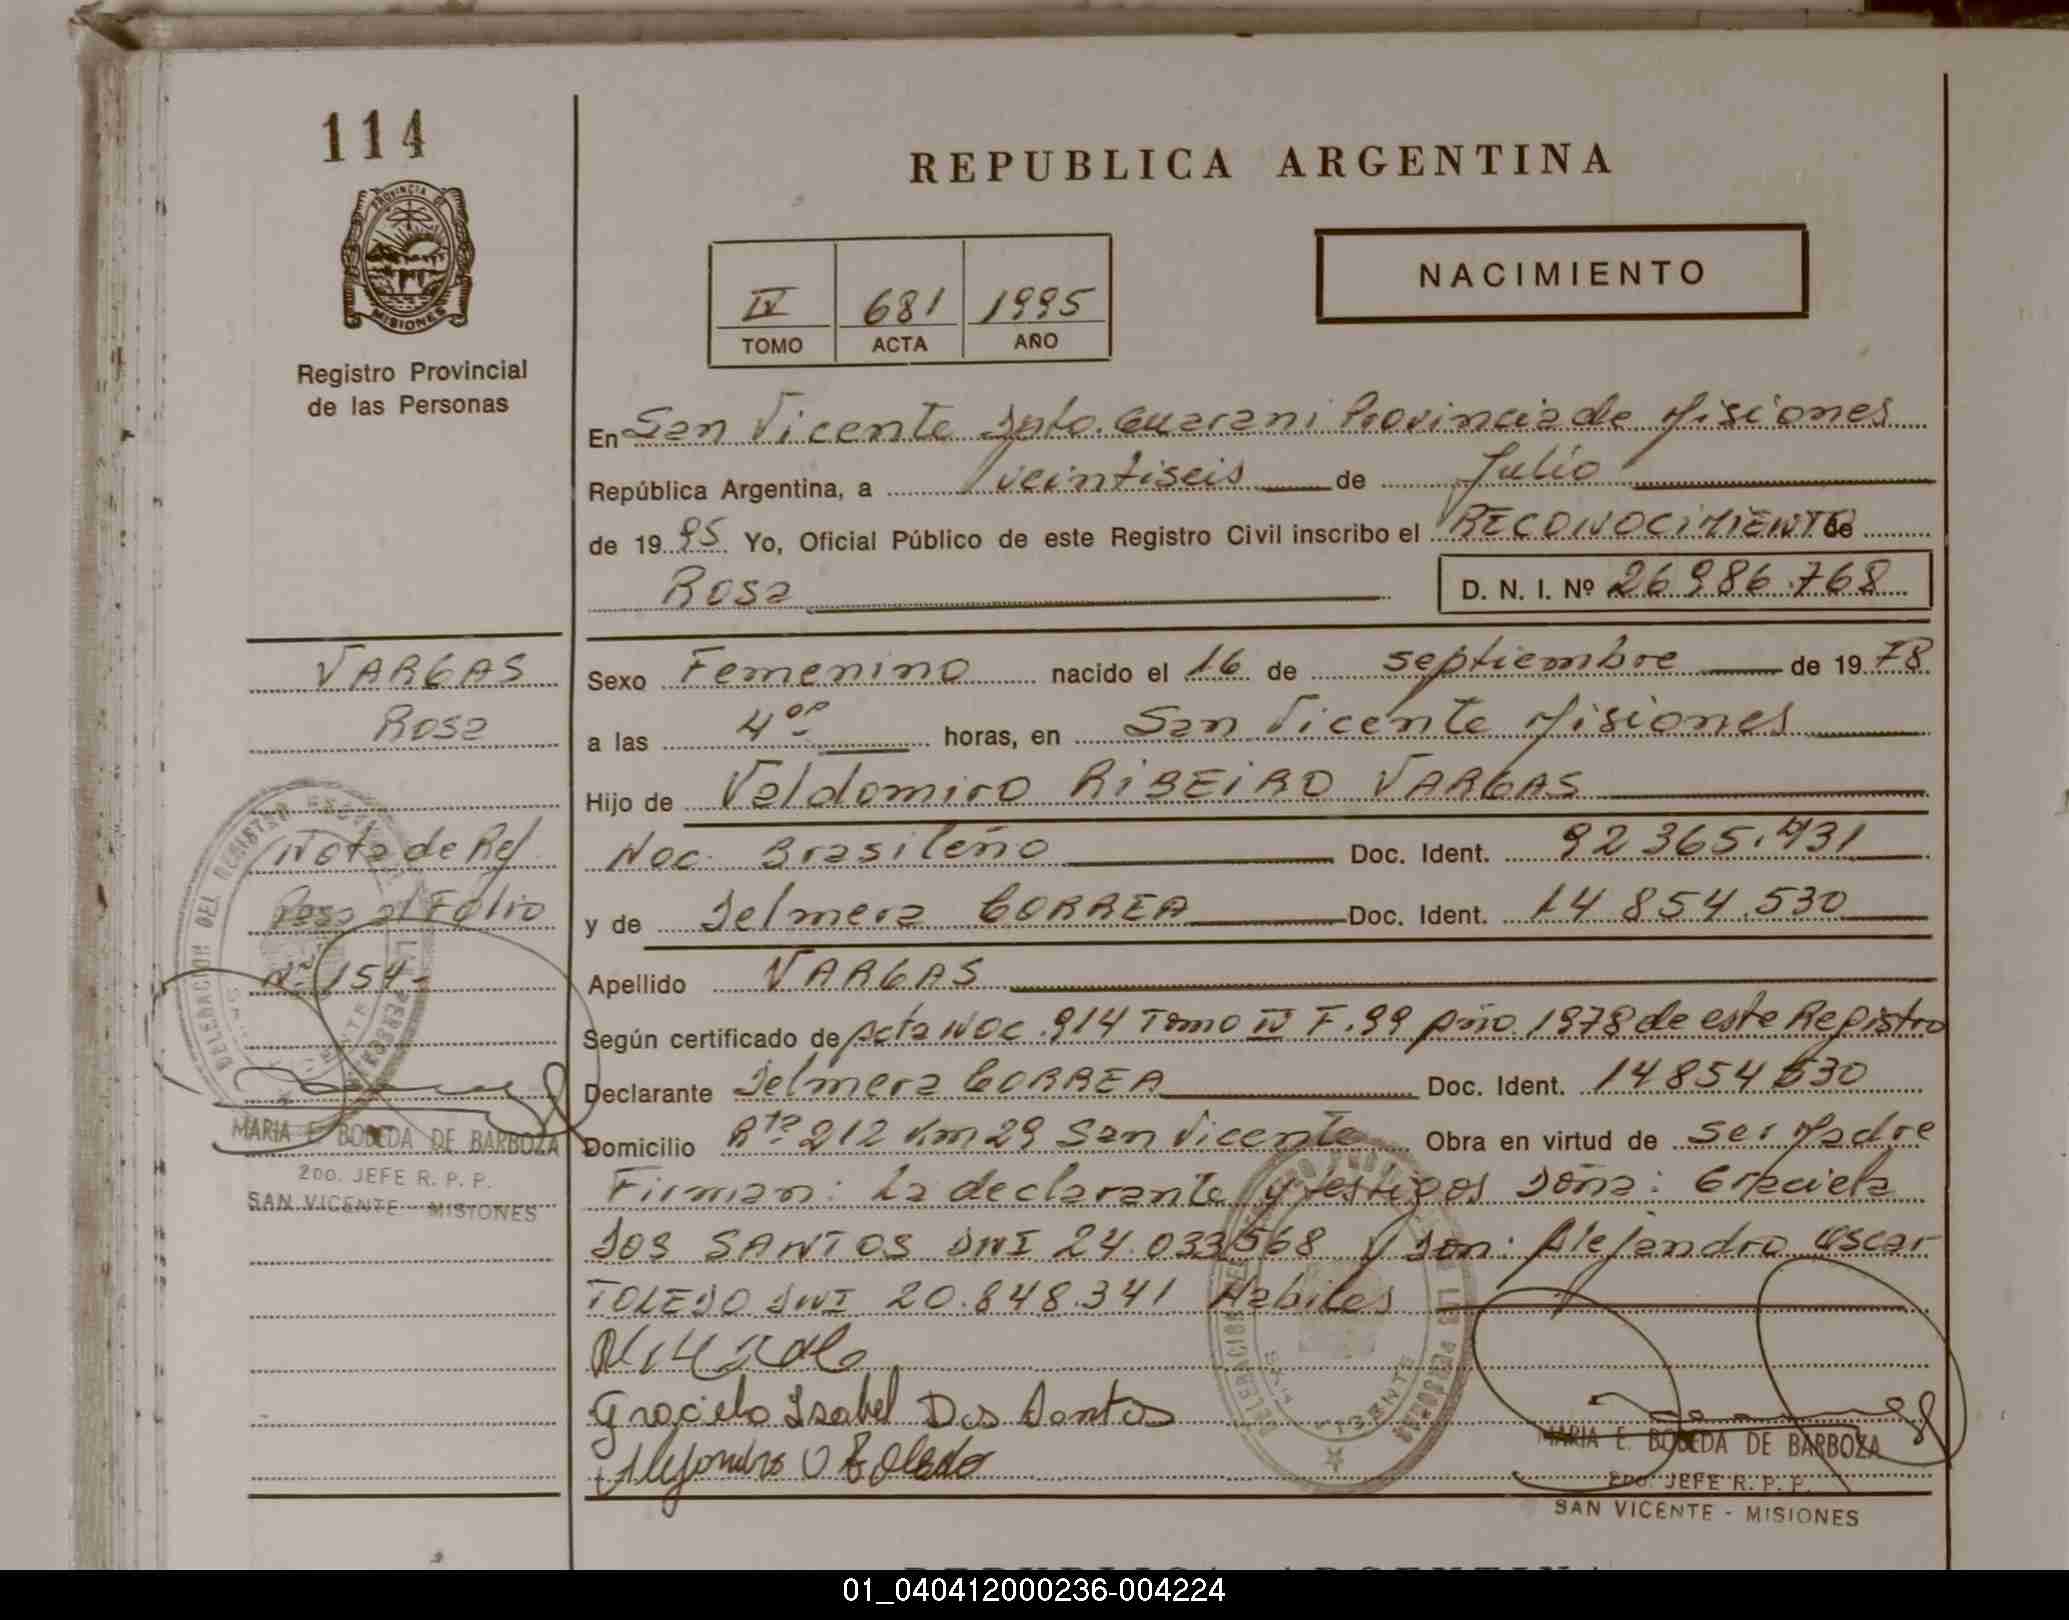 114
REPUBLICA ARGENTINA
PROVINCIA DE
MISIONES
Registro Provincial
de las Personas
IV 681 1995
TOMO ACTA AÑO
NACIMIENTO
En San Vicente Dpto. Guarani Provincia de Misiones
República Argentina, a veintiseis de Julio
de 1995 Yo, Oficial Público de este Registro Civil inscribo el RECONOCIMIENTO de
Rosa D. N. I. Nº 26 986.768
VARGAS
Rosa
Nota de Ref.
Pasa al Folio
Nº 154-
MARIA E. BOBEDA DE BARBOZA
2DO. JEFE R. P. P.
SAN VICENTE - MISIONES
Sexo Femenino nacido el 16 de septiembre de 1978
a las 4 horas, en San Vicente Misiones
Hijo de Valdomiro RIBEIRO VARGAS
Nac. Brasileño Doc. Ident. 92 365.431
y de Delmera CORREA Doc. Ident. 14 854.530
Apellido VARGAS
Según certificado de Acta Nac. 914 Tomo IV F. 99 Año 1978 de este Registro
Declarante Delmera CORREA Doc. Ident. 14854530
Domicilio Rta 212 Km 29 San Vicente Obra en virtud de ser Madre
Firman: La declarante y testigos Doña: Graciela
DOS SANTOS DNI 24.033568 y Don: Alejandro Oscar
TOLEDO DNI 20.848.341 Habiles
Graciela Isabel Dos Santos
Alejandro O Toledo
DELEGACION DEL REGISTRO
DE LAS PERSONAS
VICENTE
MARIA E. BOBEDA DE BARBOZA
2DO. JEFE R. P. P.
SAN VICENTE - MISIONES
REPUBLICA ARGENTINA
01_040412000236-004224